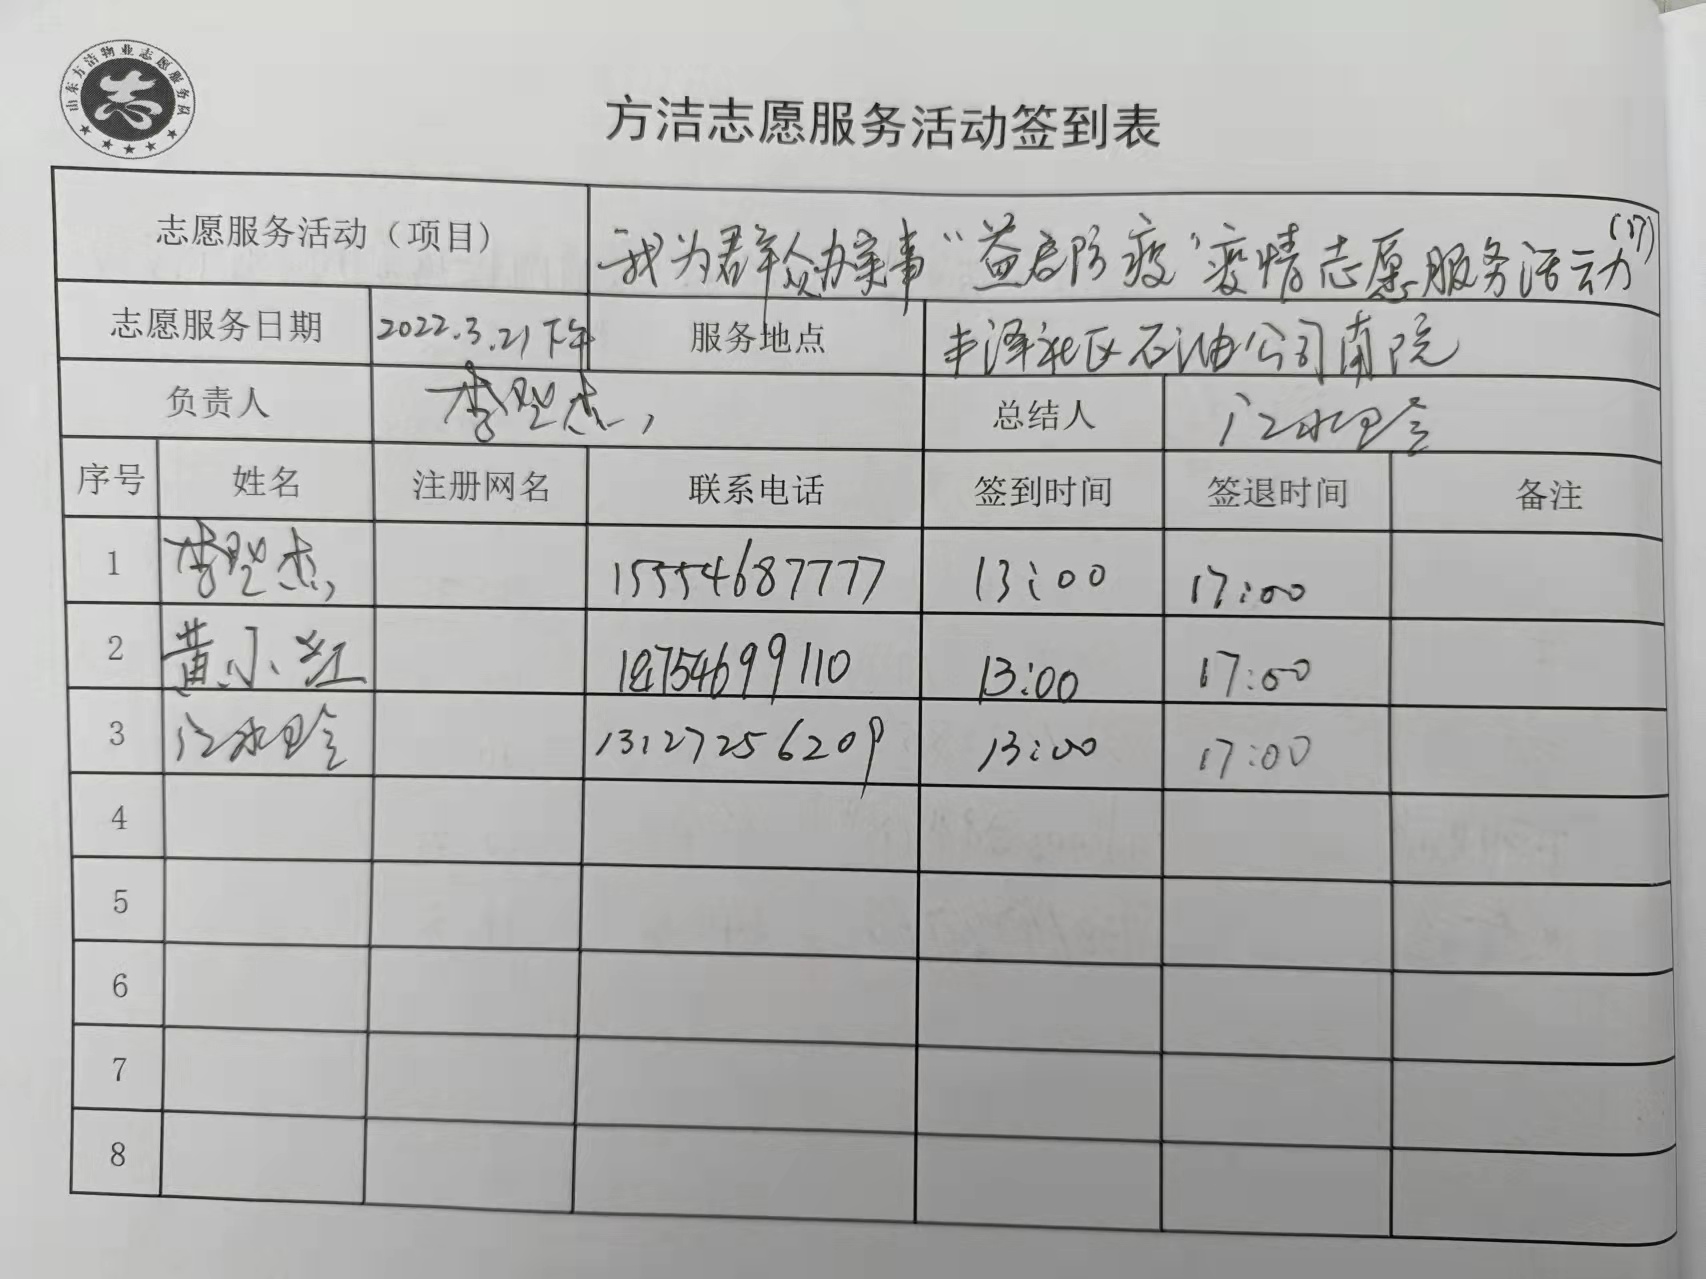 山东方洁物业志愿服务队
方洁志愿服务活动签到表
志愿服务活动（项目） 我为群众办实事“益启防疫”疫情志愿服务活动(17)
志愿服务日期 2022.3.21下午 服务地点 丰泽社区石油公司南院
负责人 李坚杰 总结人
序号 姓名 注册网名 联系电话 签到时间 签退时间 备注
1 李坚杰 15554687777 13:00 17:00
2 黄小红 18754699110 13:00 17:00
3 13127256209 13:00 17:00
4
5
6
7
8